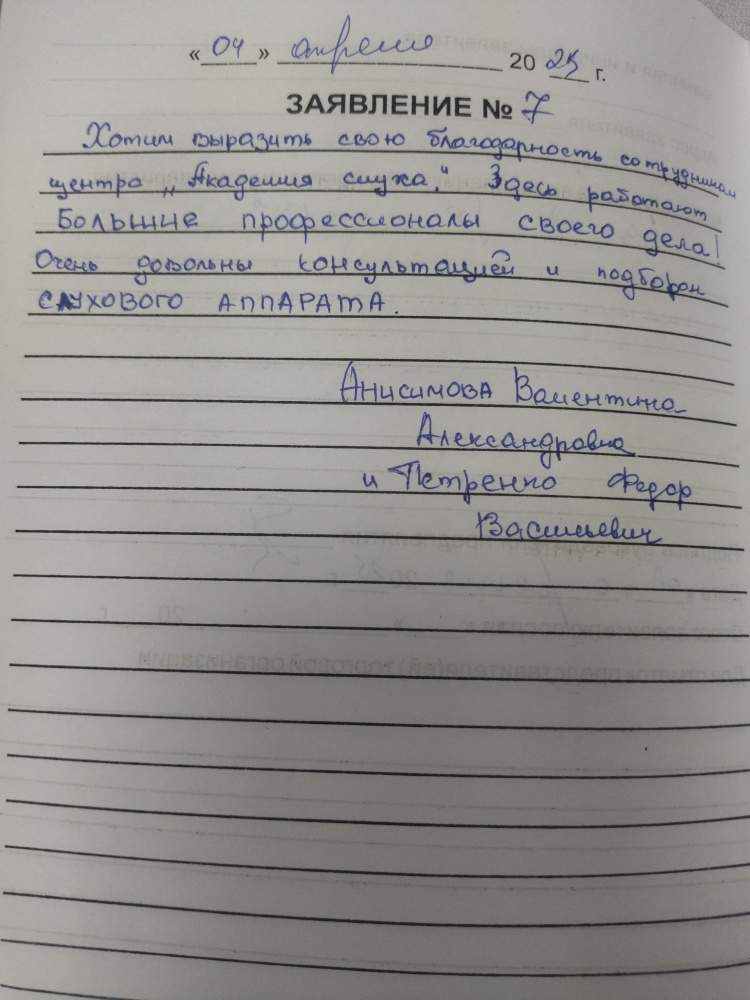 «04» апреля 2025 г.
ЗАЯВЛЕНИЕ № 7
Хотим выразить свою благодарность сотрудникам
центра „Академия слуха." Здесь работают
Большие профессионалы своего дела!
Очень довольны консультацией и подбором
СЛУХОВОГО АППАРАТА.
Анисимова Валентина
Александровна
и Петренко Федор
Васильевич